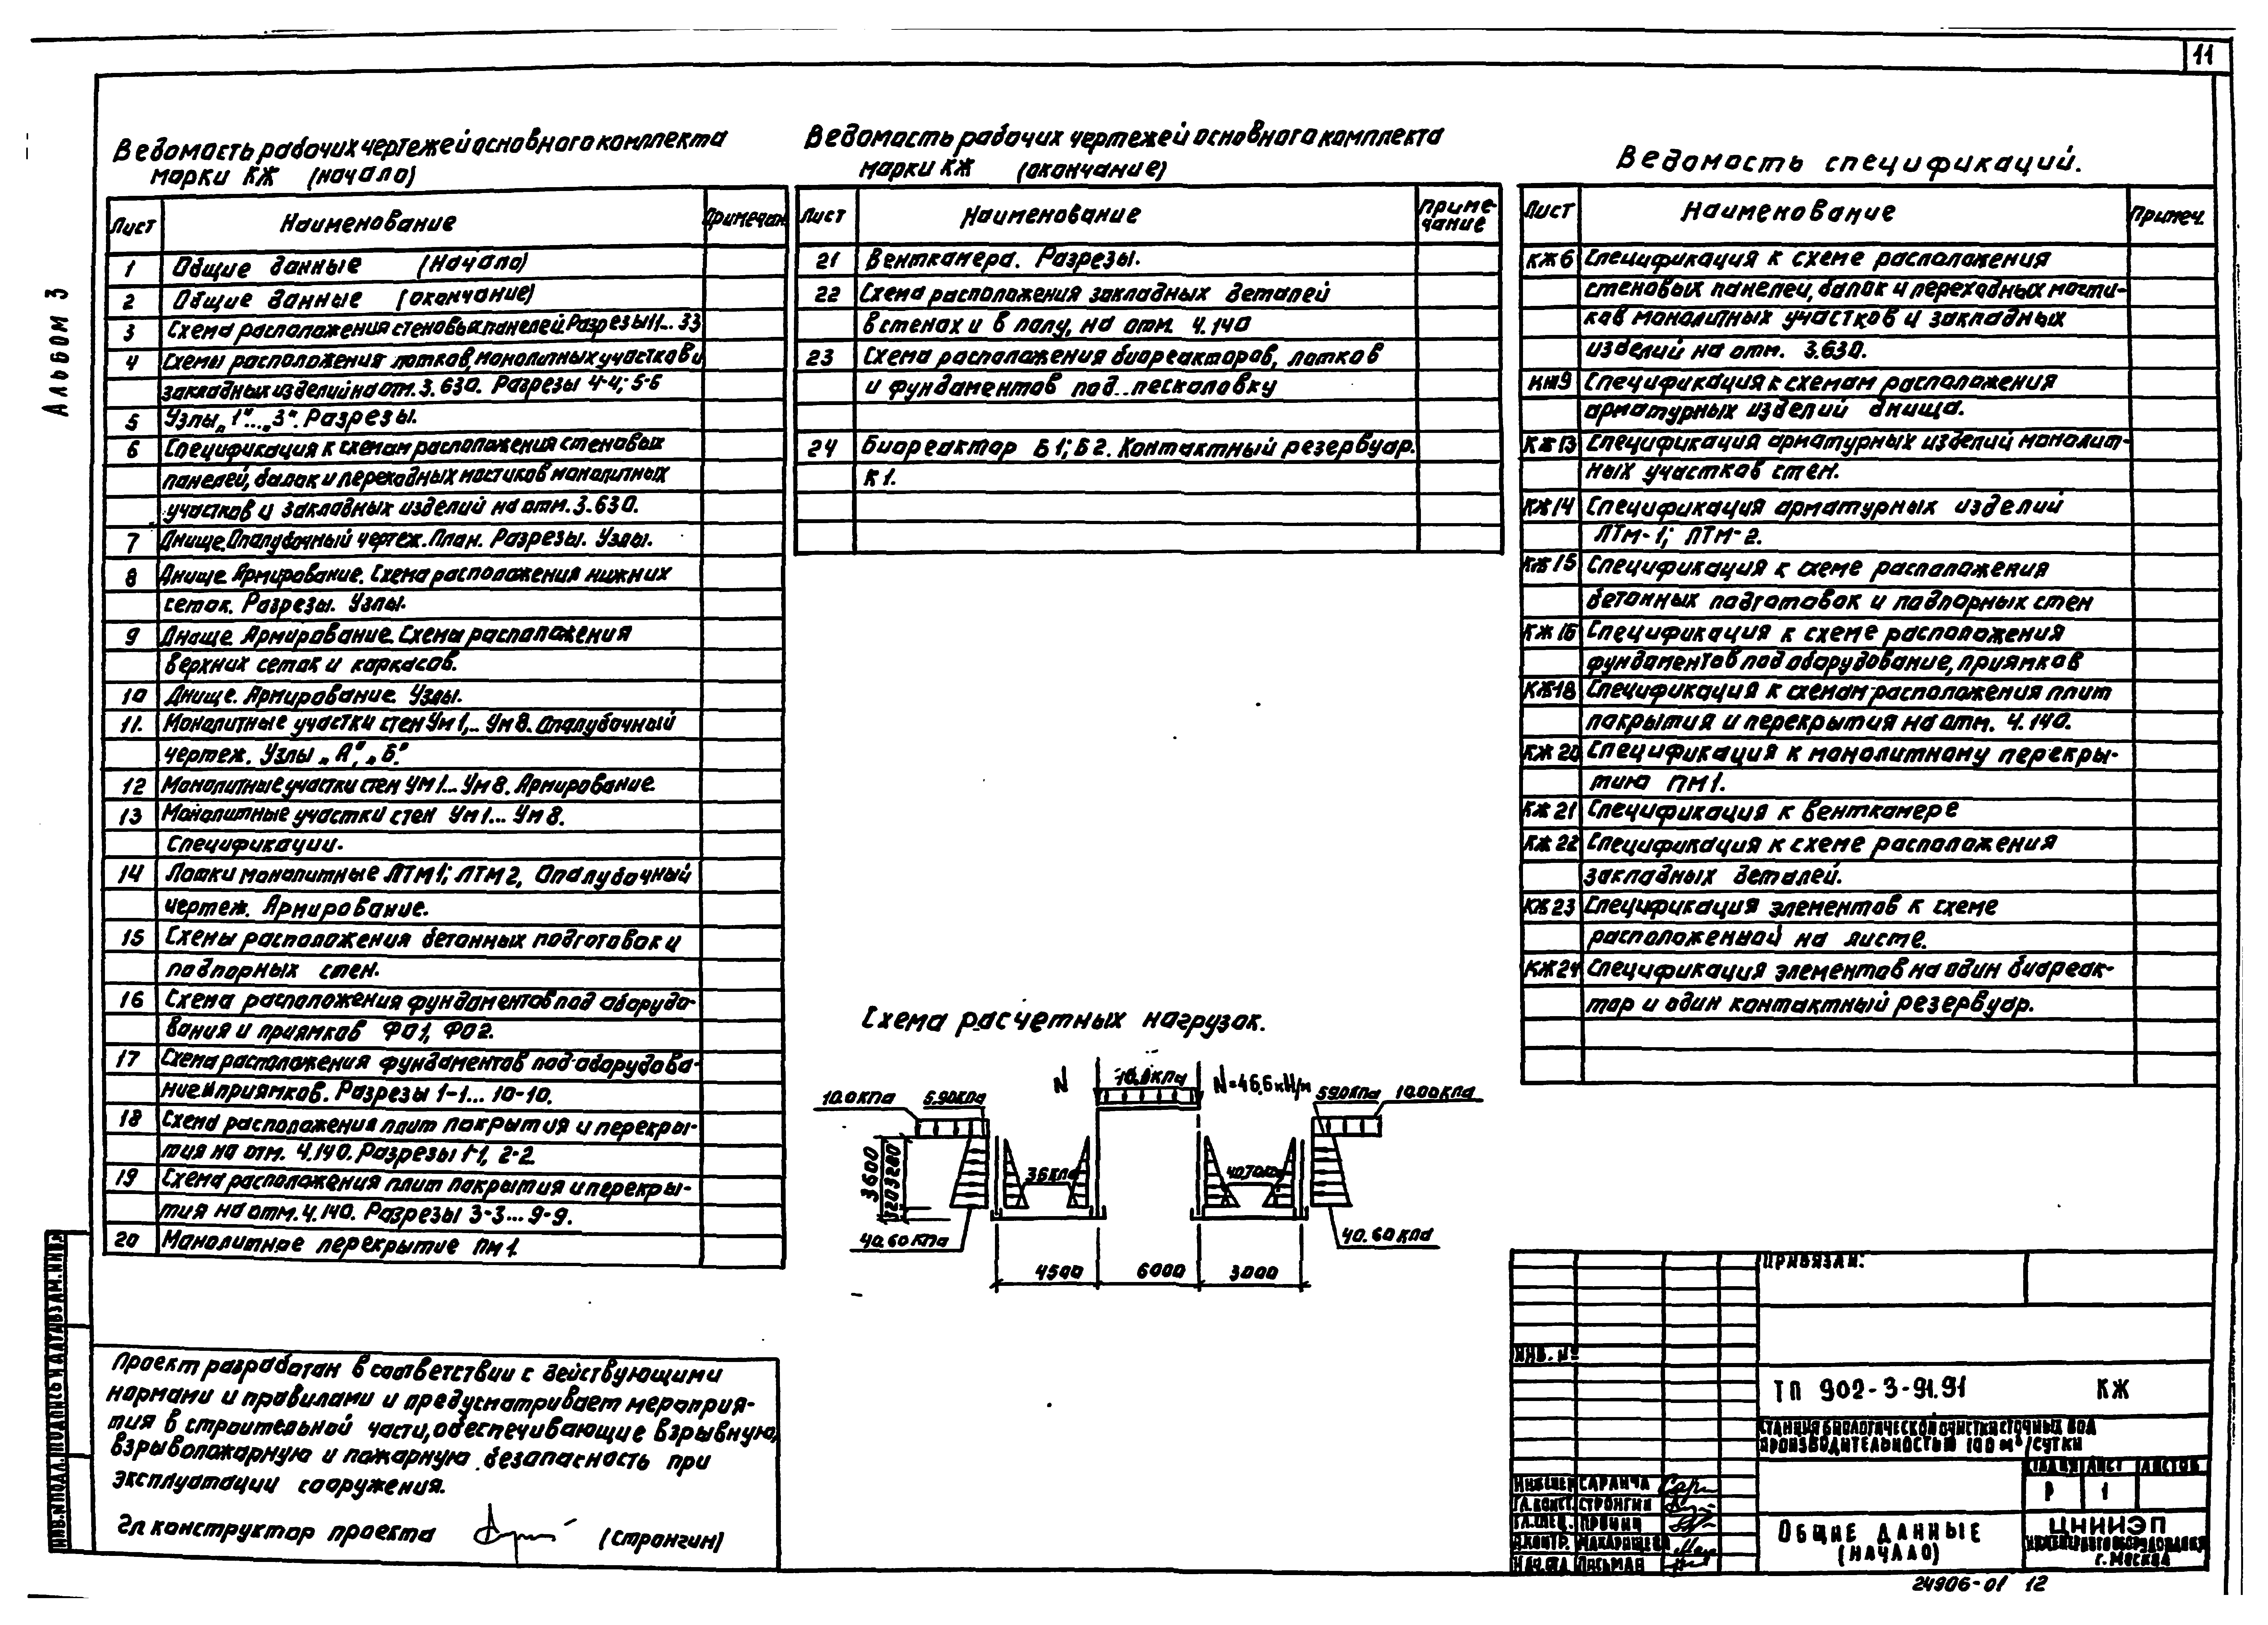 11
Альбом 3
Ведомость рабочих чертежей основного комплекта
марки КЖ (начало)
Лист Наименование Примечан.
1 Общие данные (начало)
2 Общие данные (окончание)
3 Схема расположения стеновых панелей. Разрезы 1-1...3-3
4 Схемы расположения лотков, монолитных участков и
закладных изделий на отм. 3.630. Разрезы 4-4; 5-6
5 Узлы „1"..„3". Разрезы.
6 Спецификация к схемам расположения стеновых
панелей, балок и переходных мостиков монолитных
участков и закладных изделий на отм. 3.630.
7 Днище. Опалубочный чертеж. План. Разрезы. Узлы.
8 Днище. Армирование. Схема расположения нижних
сеток. Разрезы. Узлы.
9 Днище. Армирование. Схемы расположения
верхних сеток и каркасов.
10 Днище. Армирование. Узлы.
11. Монолитные участки стен Ум1,.. Ум8. Опалубочный
чертеж. Узлы „А", „Б".
12 Монолитные участки стен Ум1... Ум8. Армирование.
13 Монолитные участки стен Ум1... Ум8.
Спецификации.
14 Лотки монолитные ЛТМ1; ЛТМ2, Опалубочный
чертеж. Армирование.
15 Схемы расположения бетонных подготовок и
подпорных стен.
16 Схема расположения фундаментов под оборудо-
вания и приямков ФО1, ФО2.
17 Схема расположения фундаментов под оборудова-
ние и приямков. Разрезы 1-1... 10-10.
18 Схема расположения плит покрытия и перекры-
тия на отм. 4.140. Разрезы 1-1, 2-2.
19 Схема расположения плит покрытия и перекры-
тия на отм. 4.140. Разрезы 3-3... 9-9.
20 Монолитное перекрытие ПМ1.
Ведомость рабочих чертежей основного комплекта
марки КЖ (окончание)
Лист Наименование Приме-
чание
21 Венткамера. Разрезы.
22 Схема расположения закладных деталей
в стенах и в полу, на отм. 4.140
23 Схема расположения биореакторов, лотков
и фундаментов под песколовку
24 Биореактор Б1; Б2. Контактный резервуар.
К1.
Ведомость спецификаций.
Лист Наименование Примеч.
КЖ6 Спецификация к схеме расположения
стеновых панелей, балок и переходных мости-
ков монолитных участков и закладных
изделий на отм. 3.630.
КЖ9 Спецификация к схемам расположения
арматурных изделий днища.
КЖ13 Спецификация арматурных изделий монолит-
ных участков стен.
КЖ14 Спецификация арматурных изделий
ЛТМ-1; ЛТМ-2.
КЖ15 Спецификация к схеме расположения
бетонных подготовок и подпорных стен
КЖ16 Спецификация к схеме расположения
фундаментов под оборудование, приямков
КЖ18 Спецификация к схемам расположения плит
покрытия и перекрытия на отм. 4.140.
КЖ20 Спецификация к монолитному перекры-
тию ПМ1.
КЖ21 Спецификация к венткамере
КЖ22 Спецификация к схеме расположения
закладных деталей.
КЖ23 Спецификация элементов к схеме
расположенной на листе.
КЖ24 Спецификация элементов на один биореак-
тор и один контактный резервуар.
Схема расчетных нагрузок.
N 10,0кПа N=46,6кН/м
10.0кПа 5.90кПа 5.90кПа 10.00кПа
3600
320 3280
36кПа
40.60кПа 40.60кПа
4500 6000 3000
Проект разработан в соответствии с действующими
нормами и правилами и предусматривает мероприя-
тия в строительной части, обеспечивающие взрывную,
взрывопожарную и пожарную безопасность при
эксплуатации сооружения.
Гл конструктор проекта (Стронгин)
ИНВ.№ПОДЛ. ПОДПИСЬ И ДАТА ВЗАМ.ИНВ.№
ПРИВЯЗАН:
ИНВ. №
ТП 902-3-91.91 КЖ
СТАНЦИЯ БИОЛОГИЧЕСКОЙ ОЧИСТКИ СТОЧНЫХ ВОД
ПРОИЗВОДИТЕЛЬНОСТЬЮ 100 м³/СУТКИ
СТАДИЯ ЛИСТ ЛИСТОВ
Р 1
ИНЖЕНЕР САРАНЧА
ГЛ.КОНСТ. СТРОНГИН
ГЛ.СПЕЦ.
Н.КОНТР.
НАЧ.ОТД. ПИСЬМАН
ОБЩИЕ ДАННЫЕ
(НАЧАЛО)
ЦНИИЭП
ИНЖЕНЕРНОГО ОБОРУДОВАНИЯ
г. МОСКВА
24906-01 12